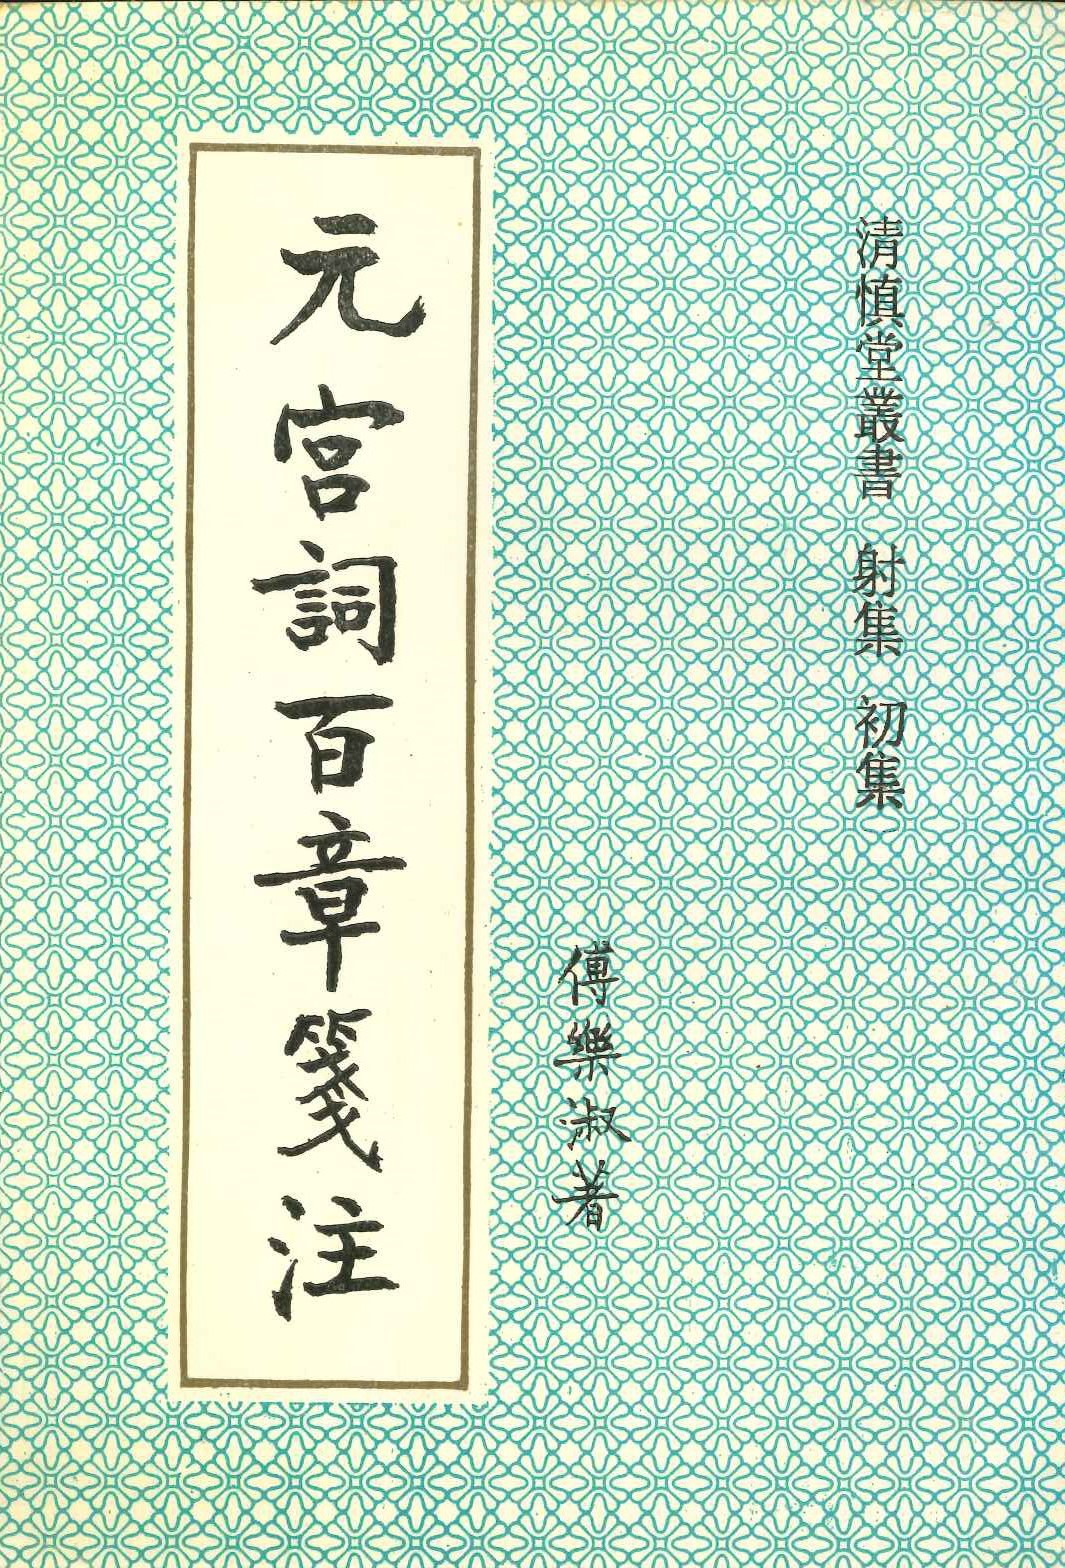 清慎堂叢書 射集 初集
傅樂淑著
元宮詞百章箋注